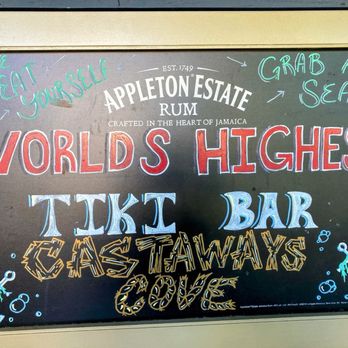 EAT YOURSELF
GRAB A
SEA
EST. 1749
APPLETON ESTATE
RUM
CRAFTED IN THE HEART OF JAMAICA
WORLDS HIGHES
TIKI BAR
CASTAWAYS
COVE